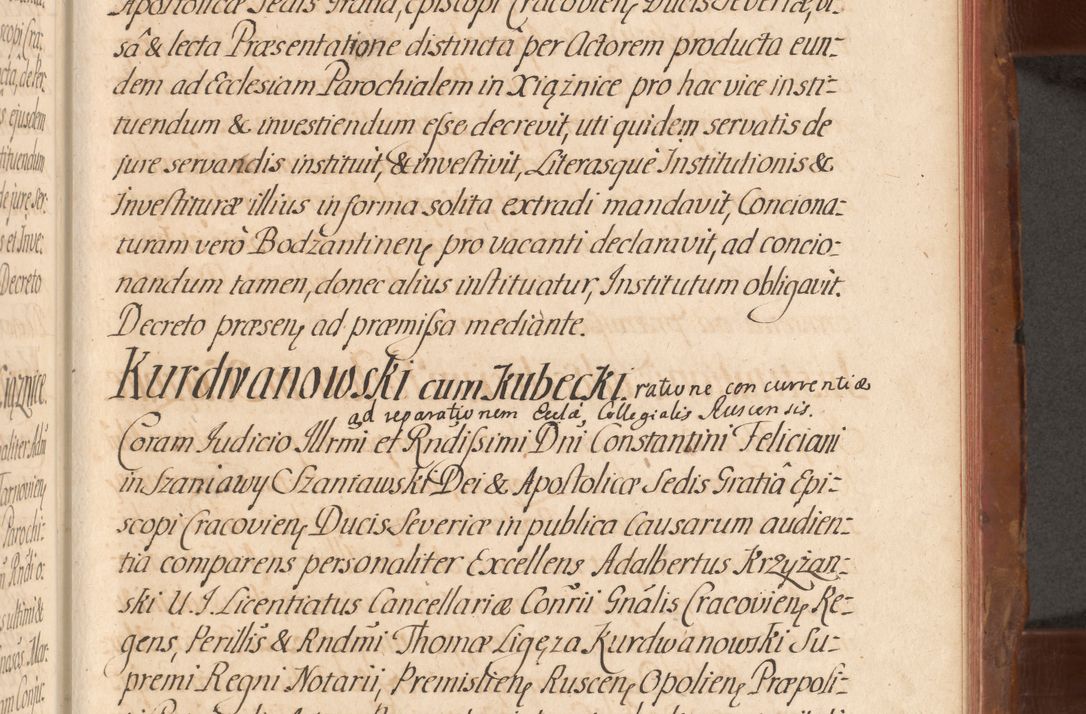 Apostolicæ Sedis Gratia, Episcopi Cracovienę Ducis Severiæ, vi-
sâ & lecta Præsentatione distincta per Actorem producta eun-
dem ad Ecclesiam Parochialem in Xiąznice pro hac vice insti-
tuendum & investiendum esse decrevit, uti quidem servatis de
jure servandis instituit, & investivit, Literasquè Institutionis &
Investituræ illius in forma solita extradi mandavit, Conciona-
turam verò Bodzantinenę pro vacanti declaravit, ad concio-
nandum tamen, donec alius instituatur, Institutum obligavit.
Decreto præsenę ad præmissa mediante.
Kurdwanowski cum Kubecki ratione concurrentiæ
ad reparationem Eccla, Collegialis Ruscensis.
Coram Judicio Illrmi et Rndissimi Dni Constantini Feliciani
in Szaniawy Szaniawski Dei & Apostolicæ Sedis Gratiâ Epi-
scopi Cracovienę Ducis Severiæ in publica Causarum audien-
tia comparens personaliter Excellens Adalbertus Krzyżan-
ski U. J. Licentiatus Cancellariæ Conrii Gnalis Cracovienę Re-
gens, Perillis & Rndmi Thomæ Ligęza Kurdwanowski Su-
premi Regni Notarii, Premislienę Ruscenę Opolienę Præposi-